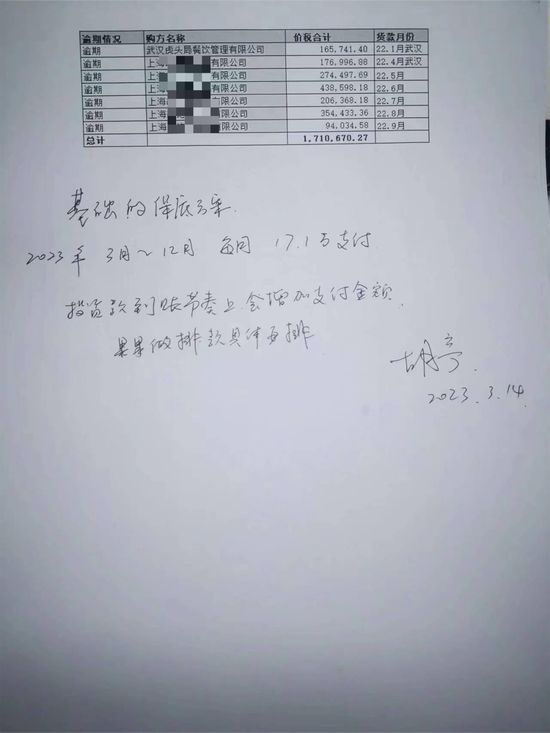 逾期情况 购方名称 价税合计 货款月份
逾期 武汉虎头局餐饮管理有限公司 165,741.40 22.1月武汉
逾期 上海 有限公司 176,996.88 22.4月武汉
逾期 上海 有限公司 274,497.69 22.5月
逾期 上海 有限公司 438,598.18 22.6月
逾期 上海 有限公司 206,368.18 22.7月
逾期 上海 限公司 354,433.36 22.8月
逾期 上海 限公司 94,034.58 22.9月
总计 1,710,670.27
基础的保底方案.
2023年 3月～12月 每月 17.1万支付.
投资款到账节奏上会增加支付金额.
果果做排款具体再排
胡亭
2023.3.14